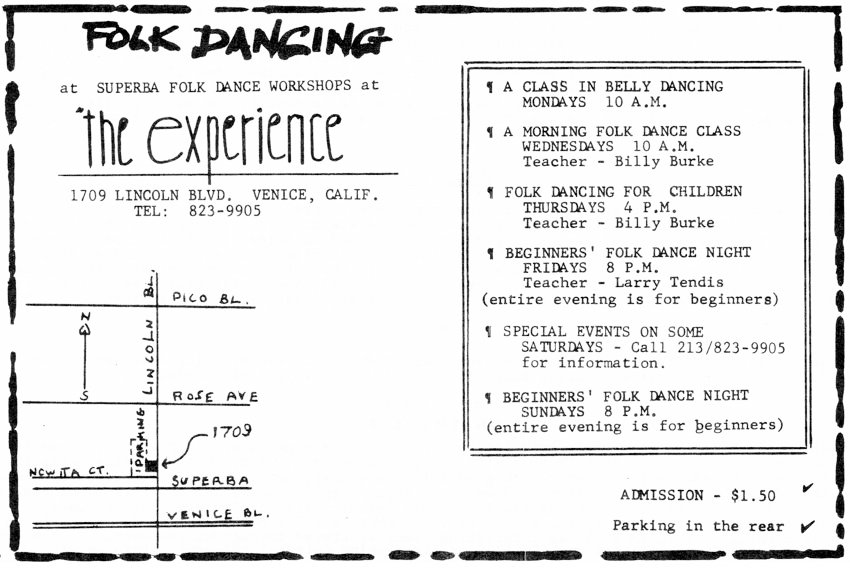 FOLK DANCING
at SUPERBA FOLK DANCE WORKSHOPS at
"the experience
1709 LINCOLN BLVD. VENICE, CALIF.
TEL: 823-9905
¶ A CLASS IN BELLY DANCING
MONDAYS 10 A.M.
¶ A MORNING FOLK DANCE CLASS
WEDNESDAYS 10 A.M.
Teacher - Billy Burke
¶ FOLK DANCING FOR CHILDREN
THURSDAYS 4 P.M.
Teacher - Billy Burke
¶ BEGINNERS' FOLK DANCE NIGHT
FRIDAYS 8 P.M.
Teacher - Larry Tendis
(entire evening is for beginners)
¶ SPECIAL EVENTS ON SOME
SATURDAYS - Call 213/823-9905
for information.
¶ BEGINNERS' FOLK DANCE NIGHT
SUNDAYS 8 P.M.
(entire evening is for beginners)
ADMISSION - $1.50 ✓
Parking in the rear ✓
LINCOLN BL.
PICO BL.
N
S
ROSE AVE
PARKING
1709
NOWITA CT.
SUPERBA
VENICE BL.